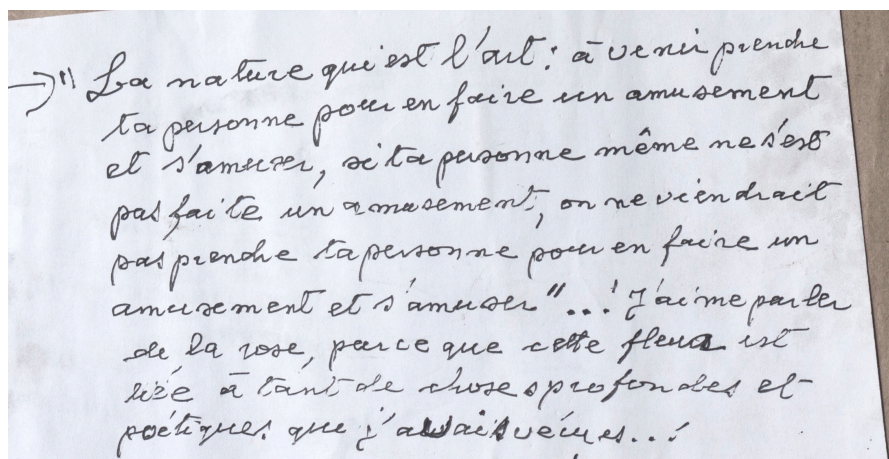 → " La nature qui est l'art : à venir prendre
ta personne pour en faire un amusement
et s'amuser, si ta personne même ne s'est
pas faite un amusement, on ne viendrait
pas prendre ta personne pour en faire un
amusement et s'amuser "...! J'aime parler
de la rose, parce que cette fleur est
liée à tant de choses profondes et
poétiques. que j'avais vécues...!